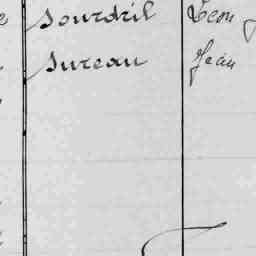 Sourdril Léon
Sureau Jean